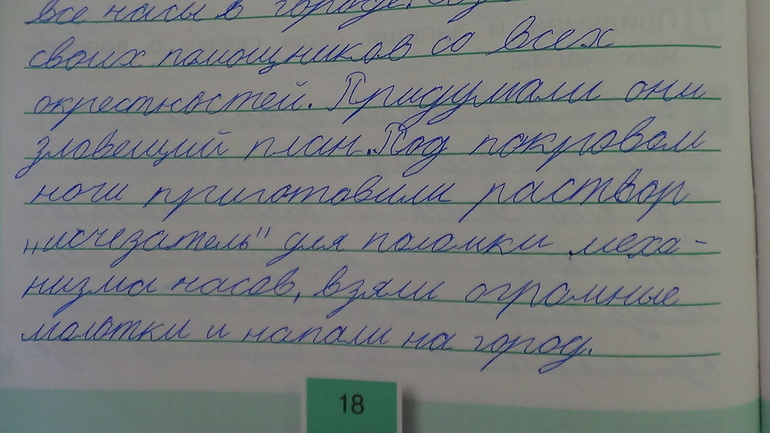 все часы в городе.
своих помощников со всех
окрестностей. Придумали они
зловещий план. Под покровом
ночи приготовили раствор
„исчезатель" для поломки меха-
низма часов, взяли огромные
молотки и напали на город.
18